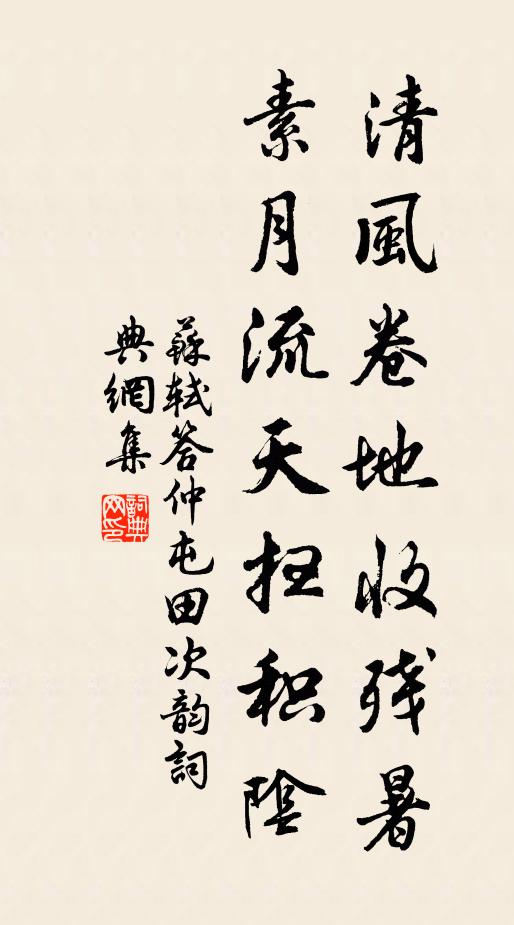 清風卷地收残暑
素月流天扫积陰
蘇軾答仲屯田次韵詞
典網集
詞典網印